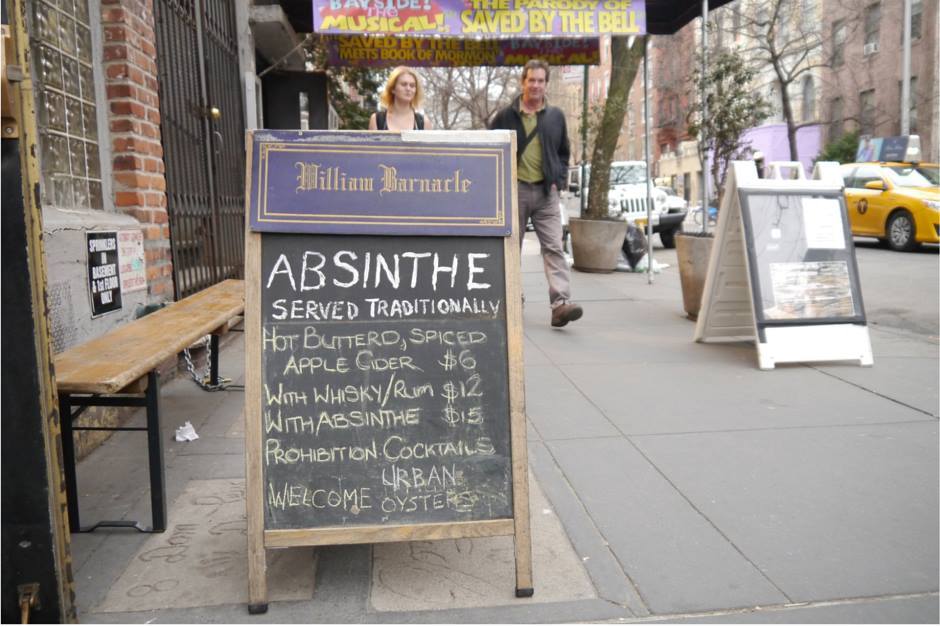 BAYSIDE! THE PARODY OF
THE MUSICAL! SAVED BY THE BELL
SAVED BY THE BELL BAYSIDE!
MEETS BOOK OF MORMON MUSICAL!
William Barnacle
ABSINTHE
SERVED TRADITIONALLY
HOT BUTTERD, SPICED
APPLE CIDER $6
WITH WHISKY/RUM $12
WITH ABSINTHE $15
PROHIBITION COCKTAILS
WELCOME URBAN
OYSTERS
SPRINKLERS
IN
BASEMENT
& 1st FLOOR
ONLY